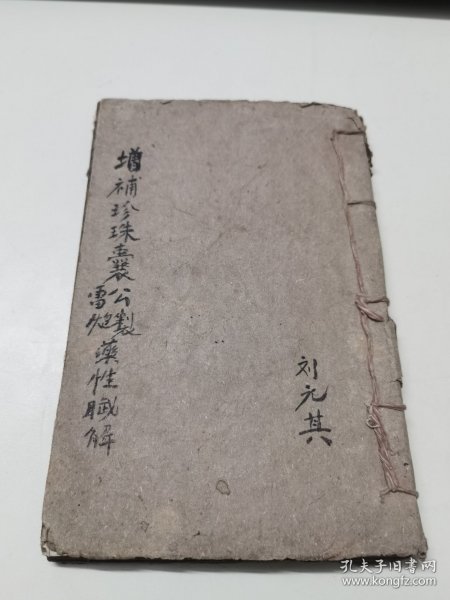 增補珍珠囊雷公炮製藥性賦解
刘元其
孔夫子旧书网
www.kongfz.com